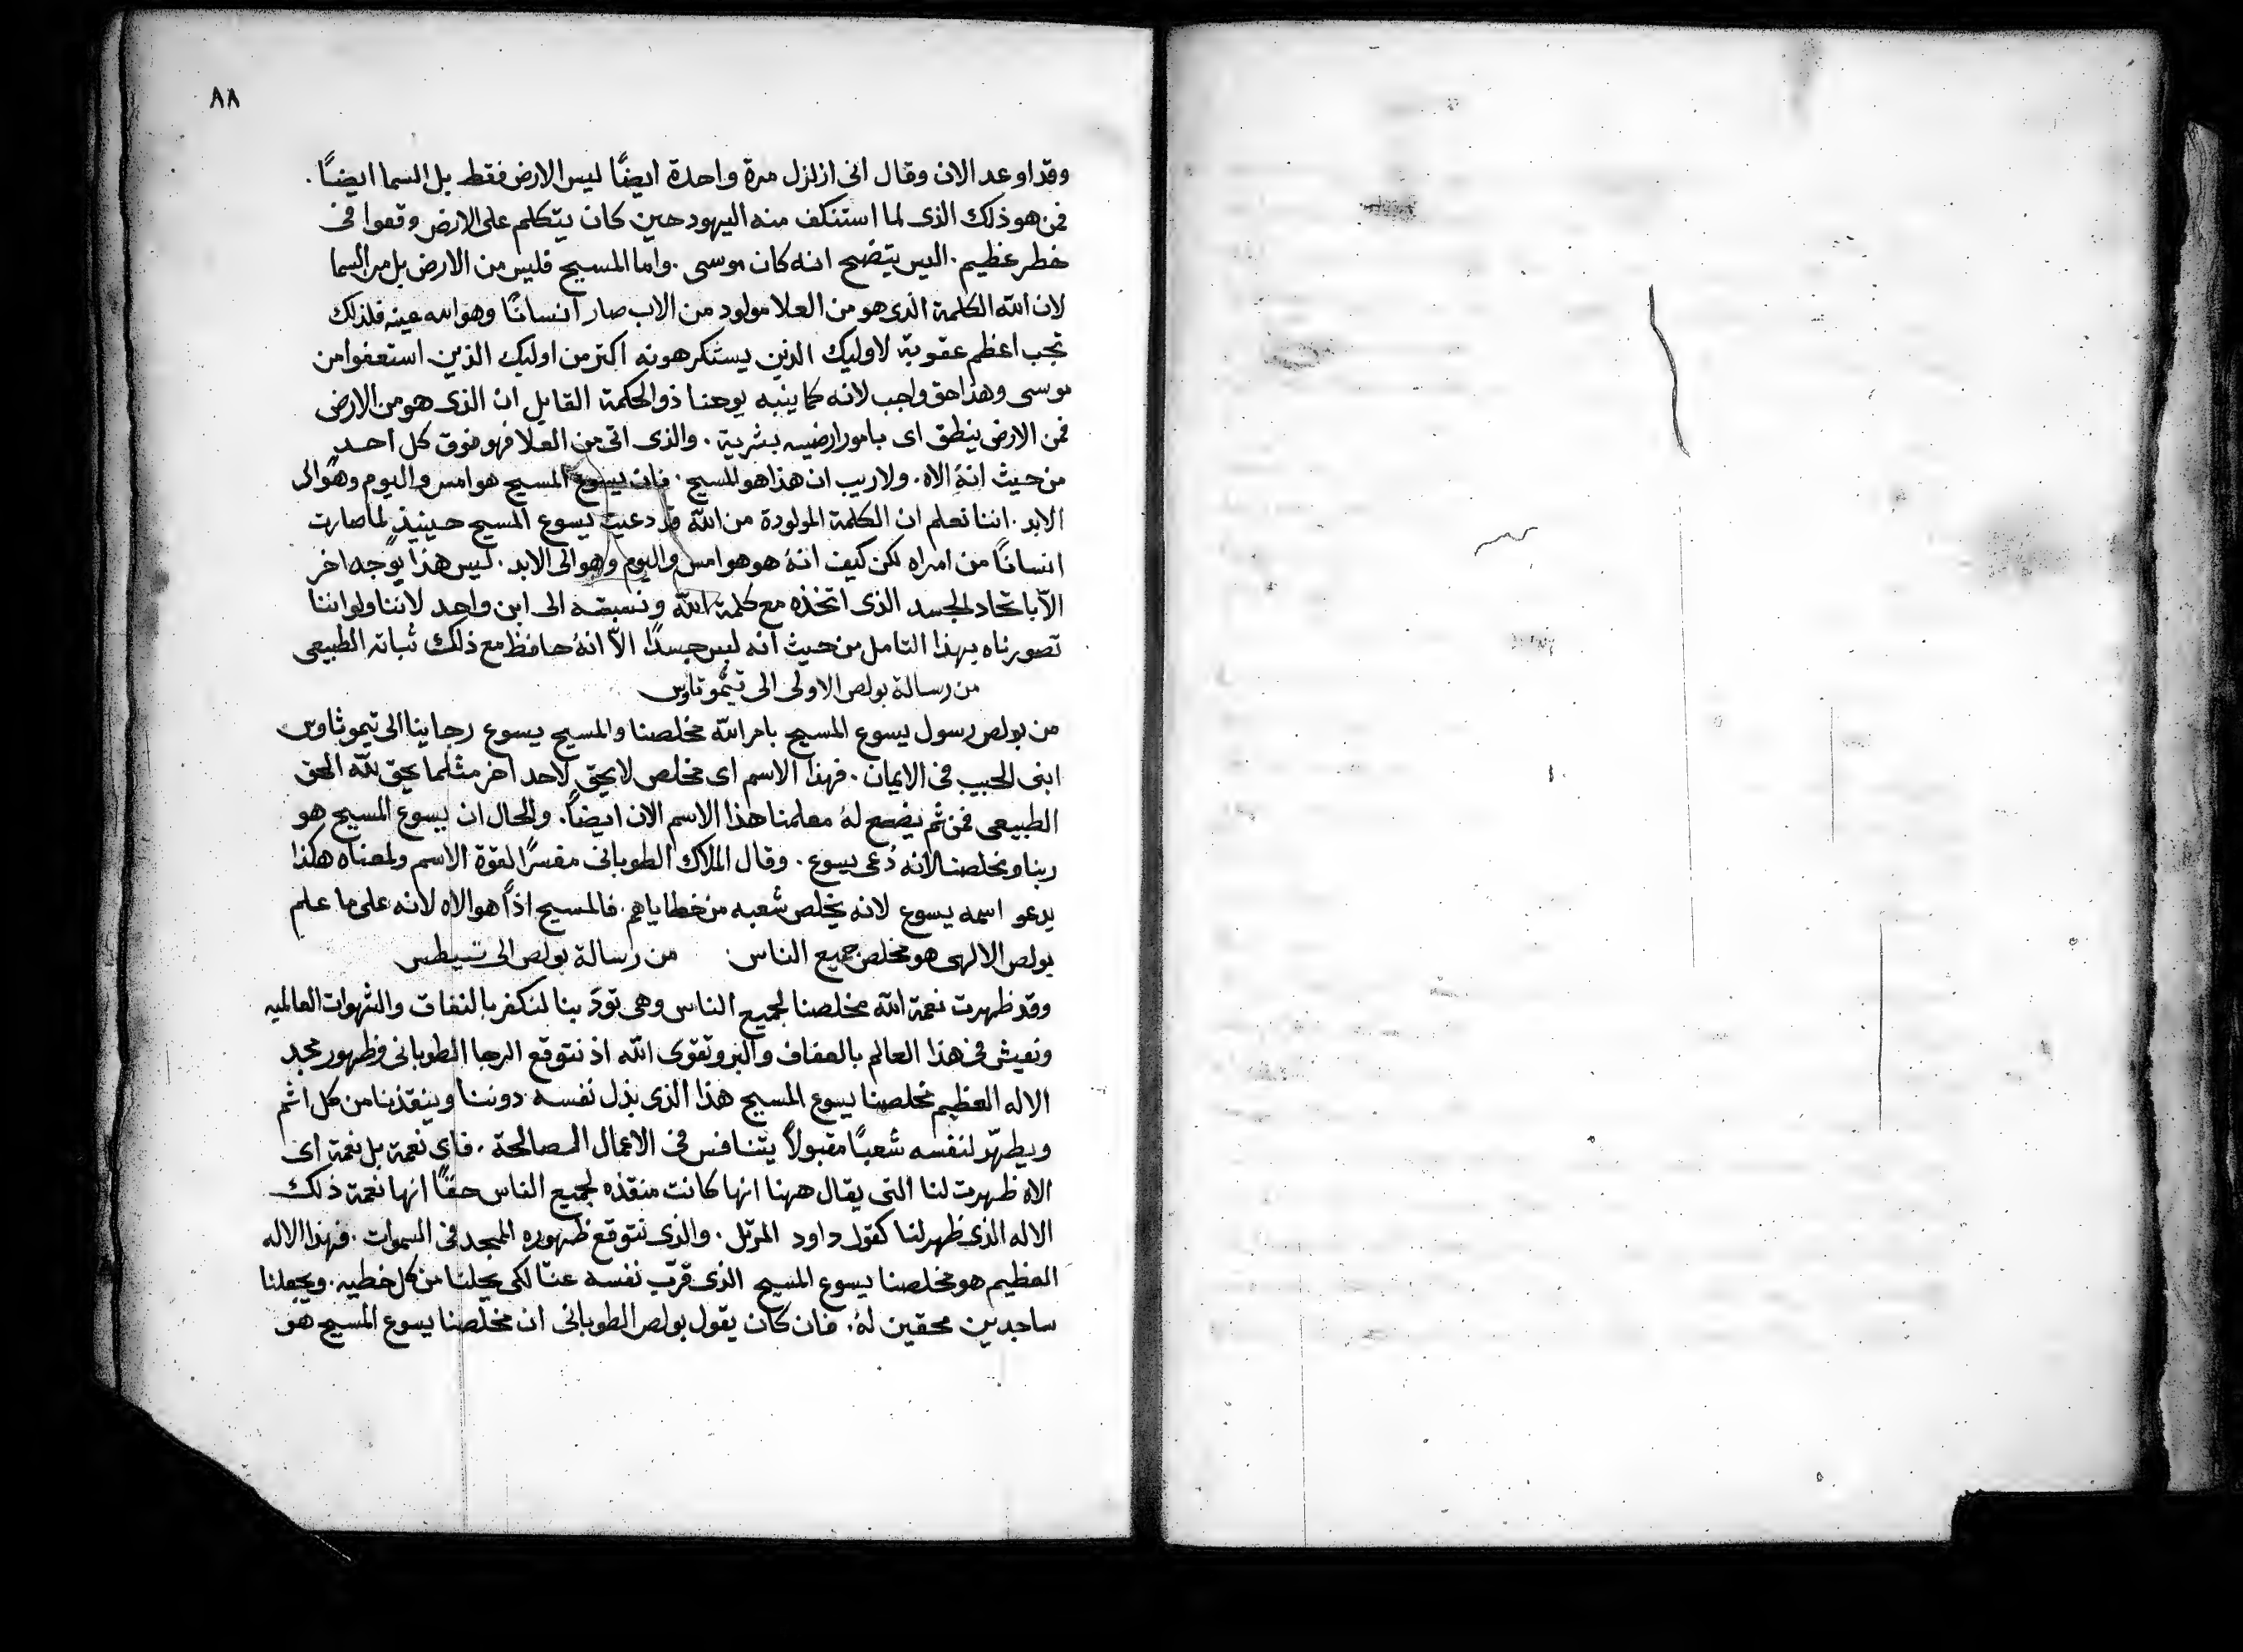 ٨٨
وقد اوعد الان وقال انى ازلزل مرة واحدة ايضًا ليس الارض فقط بل السما ايضـًا .
فمن هو ذلك الذى لما استنكف منه اليهود حين كان يتكلم على الارض وقعوا فى
خطر عظيم . اليس يتضح انه كان موسى . واما المسيح فليس من الارض بل من السما
لان الله الكلمة الذى هو من العلا مولود من الاب صار انسانًا وهو اله عينه فلذلك
تجب اعظم عقوبة لاوليك الذين يستكرهونه اكثر من اوليك الذين استعفوا من
موسى وهذا حق واجب لانه كما ينبه يوحنا ذو الحكمة القايل ان الذى هو من الارض
فمن الارض ينطق اى بامور ارضيه بشرية . والذى اتى من العلا فهو فوق كل احد
من حيث انهُ الاه . ولا ريب ان هذا هو المسيح . فان يسوع المسيح هو امس واليوم وهو الى
الابد . اننا نعلم ان الكلمة المولودة من الله قد دعيت يسوع المسيح حينيذٍ لما صارت
انسانًا من امراه لكن كيف انهُ هو هو امس واليوم وهو الى الابد . ليس هذا بوجه اخر
الّا باتحاد الجسد الذى اتخذه مع كلمة الله ونسبته الى ابن واحد لاننا ولو اننا
تصورناه بهذا التامل من حيث انه لبس جسدًا الّا انهُ حافظ مع ذلك ثباته الطبيعى
من رسالة بولص الاولى الى تيموتاوس
من بولص رسول يسوع المسيح بامر الله مخلصنا والمسيح يسوع رجاينا الى تيموثاوس
ابنى الحبيب فى الايمان . فهذا الاسم اى مخلص لا يحق لاحد اخر مثلما يحق لله الحق
الطبيعى فمن ثم يضع لهُ معلمنا هذا الاسم الان ايضاً . والحال ان يسوع المسيح هو
ربنا ومخلصنا لانه دُعى يسوع . وقال الملاك الطوبانى مفسرًا لقوة الاسم ولمعناه هكذا
يدعو اسمه يسوع لانه يخلص شعبه من خطاياهم . فالمسيح اذًا هو الاه لانه على ما علم
بولص الالهى هو مخلص جميع الناس : من رسالة بولص الى تيطس
وقد ظهرت نعمة الله مخلصنا لجميع الناس وهى تودّبنا لنكفر بالنفاق والشهوات العالميه
ونعيش فى هذا العالم بالعفاف والبر وتقوى الله اذ نتوقع الرجا الطوبانى وظهور مجد
الاله العظيم مخلصنا يسوع المسيح هذا الذى بذل نفسه دوننا وينقذنا من كل اثم
ويطهّر لنفسه شعبًا مقبولاً يتنافس فى الاعمال الصالحة . فاى نعمة بل نعمة اى
الاه ظهرت لنا التى يقال ههنا انها كانت منقذه لجميع الناس حقًا انها نعمة ذلك
الاله الذى ظهر لنا كقول داود المرتل . والذى نتوقع ظهوره الممجد فى السموات . فهذا الاله
العظيم هو مخلصنا يسوع المسيح الذى قرّب نفسه عنّا لكى يحلنا من كل خطيه . ويجعلنا
ساجدين محقين لهُ . فان كان يقول بولص الطوبانى ان مخلصنا يسوع المسيح هو